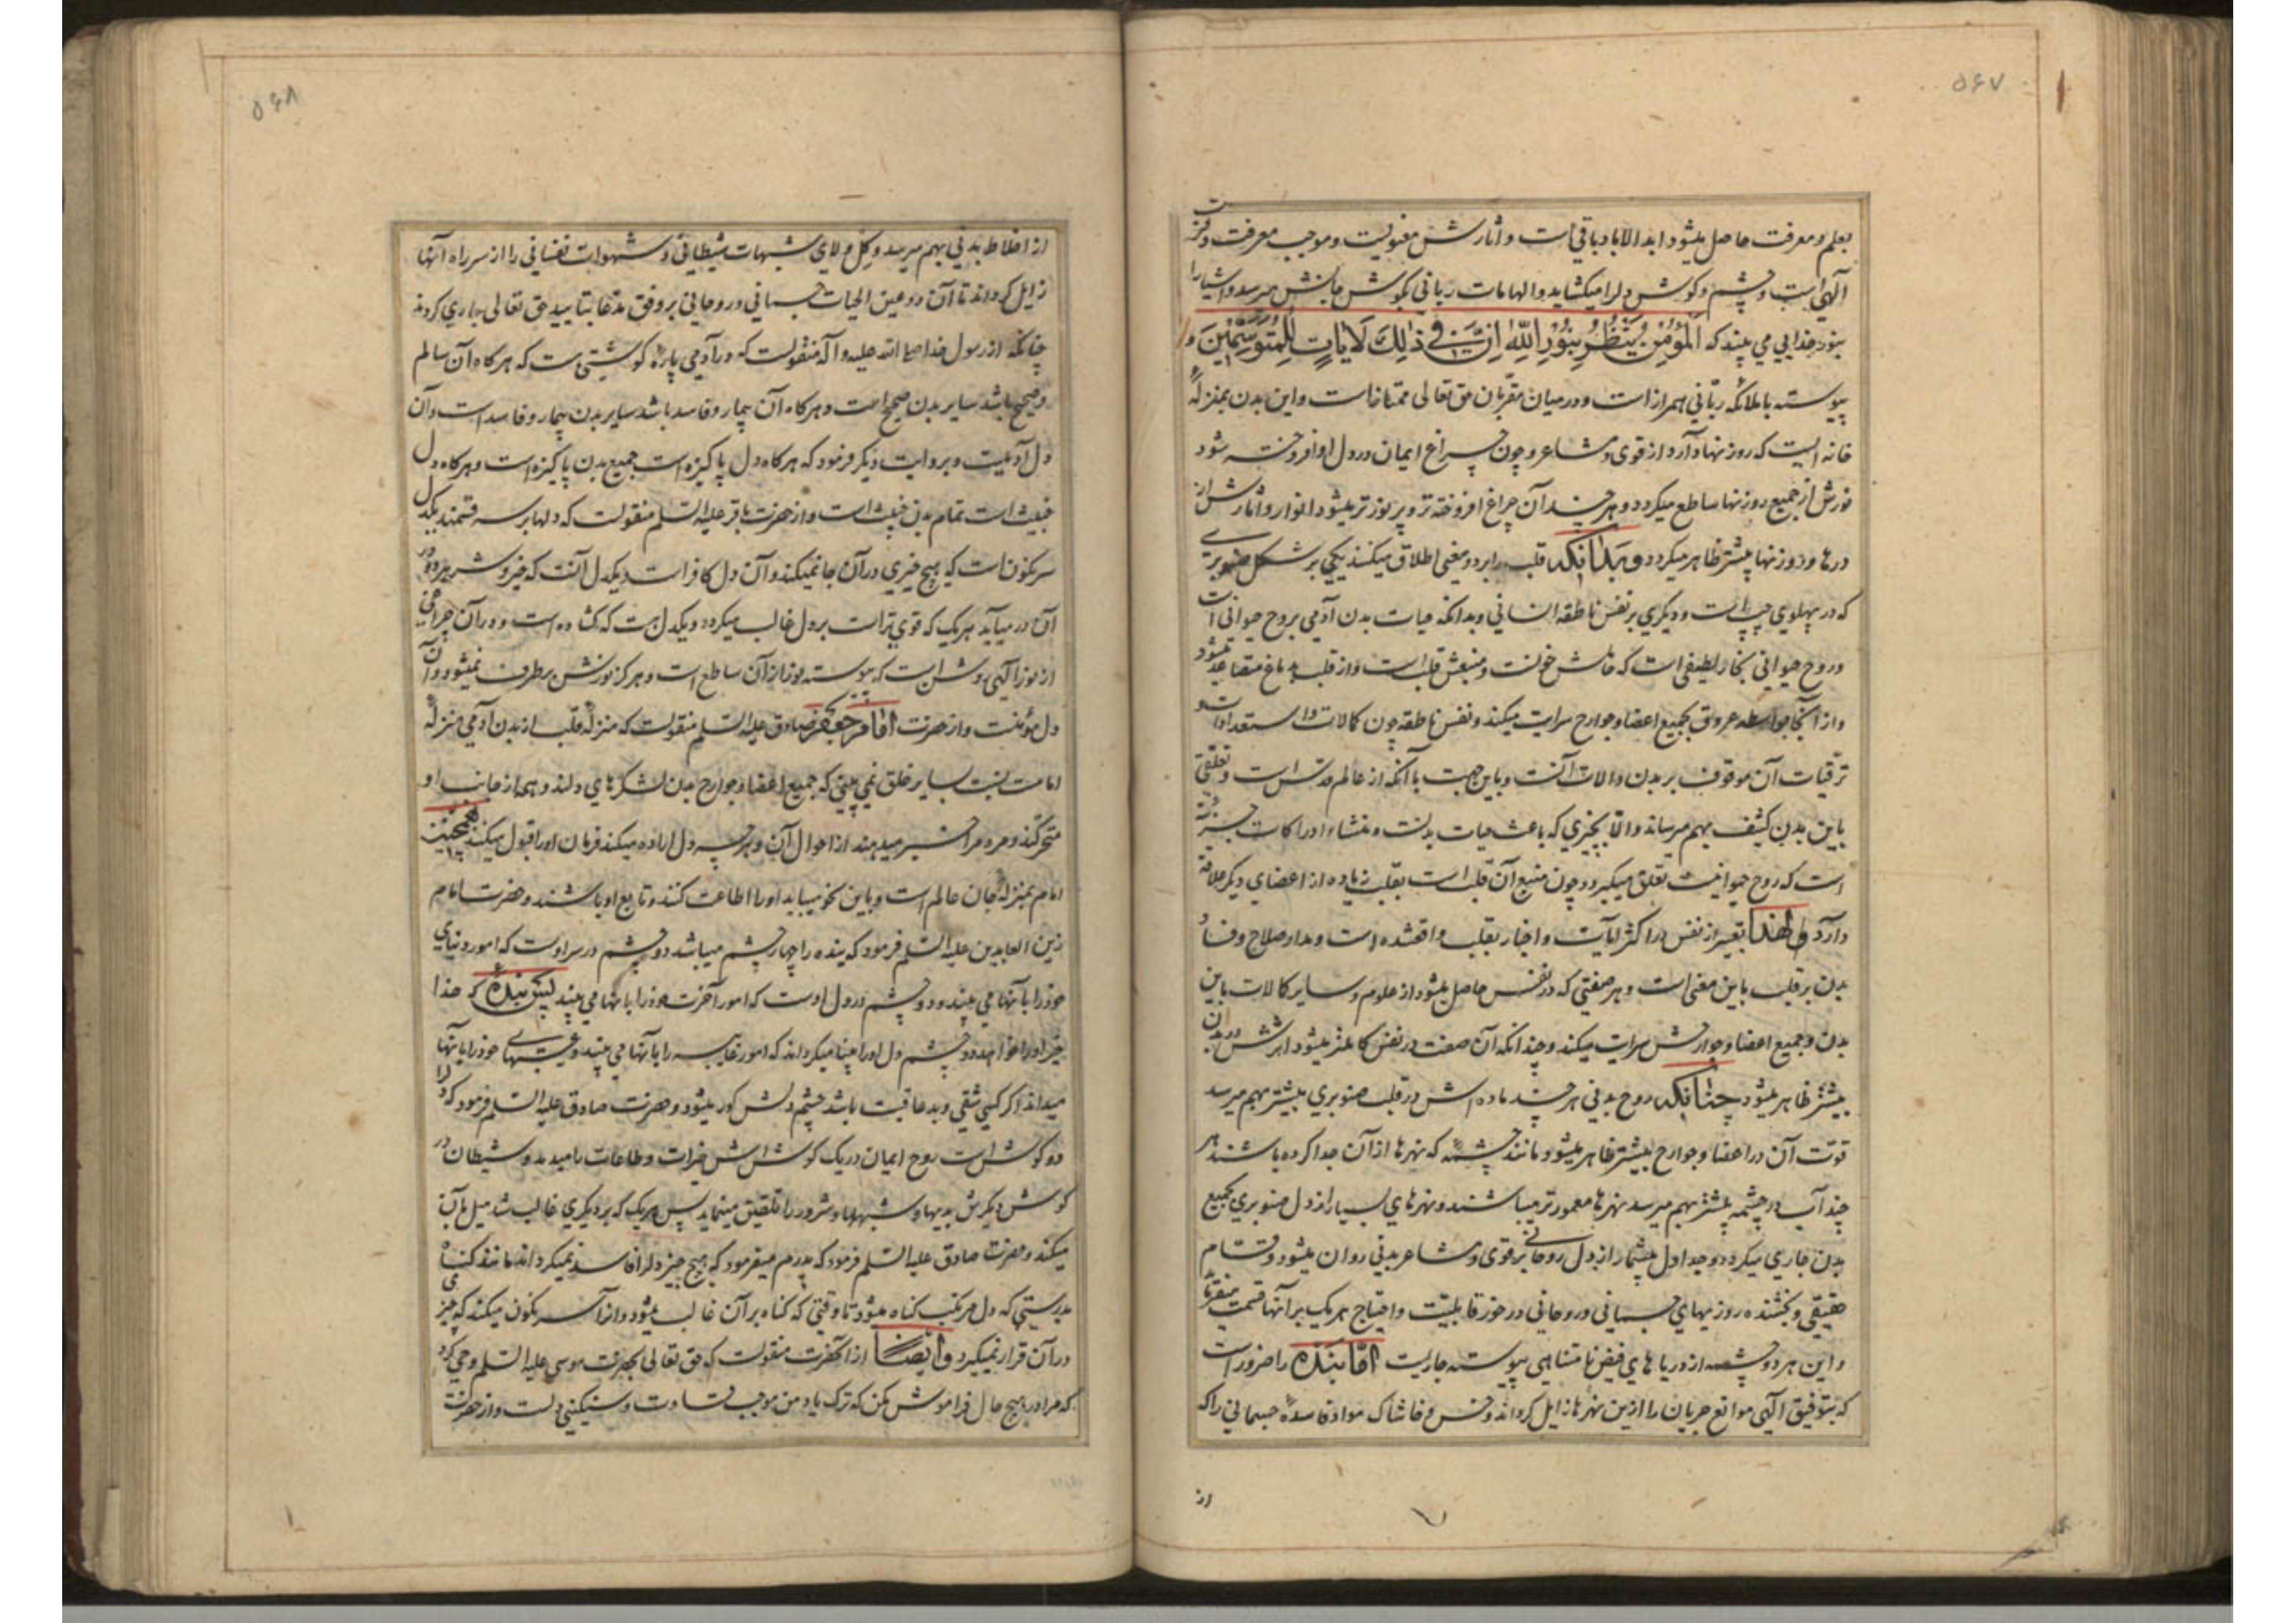 ۵۶۷
بعلم و معرفت حاصل میشود ابد الاباد باقی است و آثارش معنویست و موجب معرفت و قرب
آلهی است و چشم و کوش دلرا میکشاید و الهامات ربانی بکوش جانش میرسد و اشیا را
بنور خدایی می بیند که المؤمن ینظر بنور الله ان فی ذلک لایات للمتوسمین و
پیوسته با ملائکه ربّانی همراز است و در میان مقرّبان حق تعالی ممتاز است و این بدن بمنزلهٔ
خانه ایست که روزنها دارد از قوی و مشاعر و چون چراغ ایمان در دل او افروخته شود
نورش از جمیع روزنها ساطع میکردد و هر چند آن چراغ افروخته تر و پر نورتر میشود انوار و آثارش از
درها و روزنها بیشتر ظاهر میکردد و بدانکه قلب را بر دو معنی اطلاق میکنند یکی بر شکل صنوبری
که در پهلوی چپ است و دیکری بر نفس ناطقه انسانی و بدانکه حیات بدن آدمی بروح حیوانی است
و روح حیوانی بخار لطیفی است که حاملش خونست و منبعش قلب است و از قلب بدماغ متصاعد میشود
و از آنجا بواسطه عروق بجمیع اعضا و جوارح سرایت میکند و نفس ناطقه چون کمالات و استعدادات و
ترقیات آن موقوف بر بدن و الات آنست و باین جهت با آنکه از عالم قدس است و تعلقی
باین بدن کثیف بهم میرساند و الّا بچیزی که باعث حیات بدنست و منشاء ادراکات جزئیه
است که روح حیوانیست تعلق میکیرد و چون منبع آن قلب است بقلب زیاده از اعضای دیکر علاقه
دارد و لهذا تعبیر از نفس در اکثر ایات و اخبار بقلب واقعشده است و مدار صلاح و فساد
بدن بر قلب باین معنی است و هر صفتی که در نفس حاصل میشود از علوم و سایر کمالات باین
بدن و جمیع اعضا و جوارحش سرایت میکند و چندانکه آن صفت در نفس کاملتر میشود اثرش در بدن
بیشتر ظاهر میشود چنانکه روح بدنی هر چند ماده اش در قلب صنوبری بیشتر بهم میرسد
قوّت آن در اعضا و جوارح بیشتر ظاهر میشود مانند چشمهٔ که نهرها از آن جدا کرده باشند هر
چند آب در چشمه بیشتر بهم میرسد نهرها معمورتر میباشند و نهرهای بسیار از دل صنوبری بجمیع
بدن جاری میکردد و جداول بیشمار از دل روحانی بر قوی و مشاعر بدنی روان میشود و قسّام
حقیقی و بخشنده روزیهای جسمانی و روحانی در خور قابلیّت و احتیاج هر یک بر آنها قسمت میفرماید
و این هر دو چشمه از دریاهای فیض نامتناهی پیوسته جاریست امّا بنده را ضرور است
که بتوفیق آلهی موانع جریان را ازین نهرها زایل کرداند و خس و خاشاک مواد فاسدهٔ جسمانی را که
از
۵۶۸
از اخلاط بدنی بهم میرسد و کل و لای شبهات شیطانی و شهوات نفسانی را از سر راه آنها
زایل کرداند تا آن دو عین الحیات جسمانی و روحانی بر وفق مدعا بتایید حق تعالی جاری کردند
چنانکه از رسول خدا صلی الله علیه و آله منقولست که در آدمی پارهٔ کوشتی هست که هر کاه آن سالم
و صحیح باشد سایر بدن صحیح است و هر کاه آن بیمار و فاسد باشد سایر بدن بیمار و فاسد است و آن
دل آدمیست و بروایت دیکر فرمود که هر کاه دل پاکیزه است جمیع بدن پاکیزه است و هر کاه دل
خبیث است تمام بدن خبیث است و از حضرت باقر علیه السّلم منقولست که دلها بر سه قسمند یکدل
سرنکون است که هیچ خیری در آن جا نمیکند و آن دل کافر است و یکدل آنست که خیر و شر هر دو در
آن در میآید هر یک که قوی تر است بر دل غالب میکردد و یکدل هست که کشاده است و در آن چراغی
از نور آلهی روشن است که پیوسته نور از آن ساطع است و هرکز نورش برطرف نمیشود و آن
دل مؤمنست و از حضرت امام جعفر صادق علیه السّلم منقولست که منزلهٔ قلب از بدن آدمی منزلهٔ
امامت نسبت بسایر خلق نمی بینی که جمیع اعضا و جوارح بدن لشکرهای دلند و همه از جانب او
متحرکند و مردم را خبر میدهند از احوال آن و هر چه دل اراده میکند فرمان او را قبول میکنند همچنین
امام بمنزلهٔ جان عالم است و باین نحو میباید او را اطاعت کنند و تابع او باشند و حضرت امام
زین العابدین علیه السّلم فرمود که بنده را چهار چشم میباشد دو چشم در سر اوست که امور دنیای
خود را بآنها می بیند و دو چشم در دل اوست که امور آخرت خود را بآنها می بیند پس بنده که خدا
خیر او را خواهد دو چشم دل او را بینا میکرداند که امور غایبه را بآنها می بیند و عیبهای خود را بآنها
میداند اکر کسی شقی و بدعاقبت باشد چشم دلش کور میشود و حضرت صادق علیه السّلم فرمود که دلرا
دو کوش است روح ایمان در یک کوش اش خیرات و طاعات را میدمد و شیطان در
کوش دیکرش بدیها و شبهها و شرور را تلقین مینماید پس هر یک که بر دیکری غالب شد میل بآن
میکند و حضرت صادق علیه السّلم فرمود که پدرم میفرمود که هیچ چیز دلرا فاسد نمیکرداند مانند کناه
بدرستی که دل مرتکب کناه میشود تا وقتی که کناه بر آن غالب میشود و آنرا سرنکون میکند که چیزی
در آن قرار نمیکیرد و ایضا از آنحضرت منقولست که حق تعالی بحضرت موسی علیه السّلم وحی کرد
که مرا در هیچ حال فراموش مکن که ترک یاد من موجب قساوت و سنکینی دلست و از حضرت